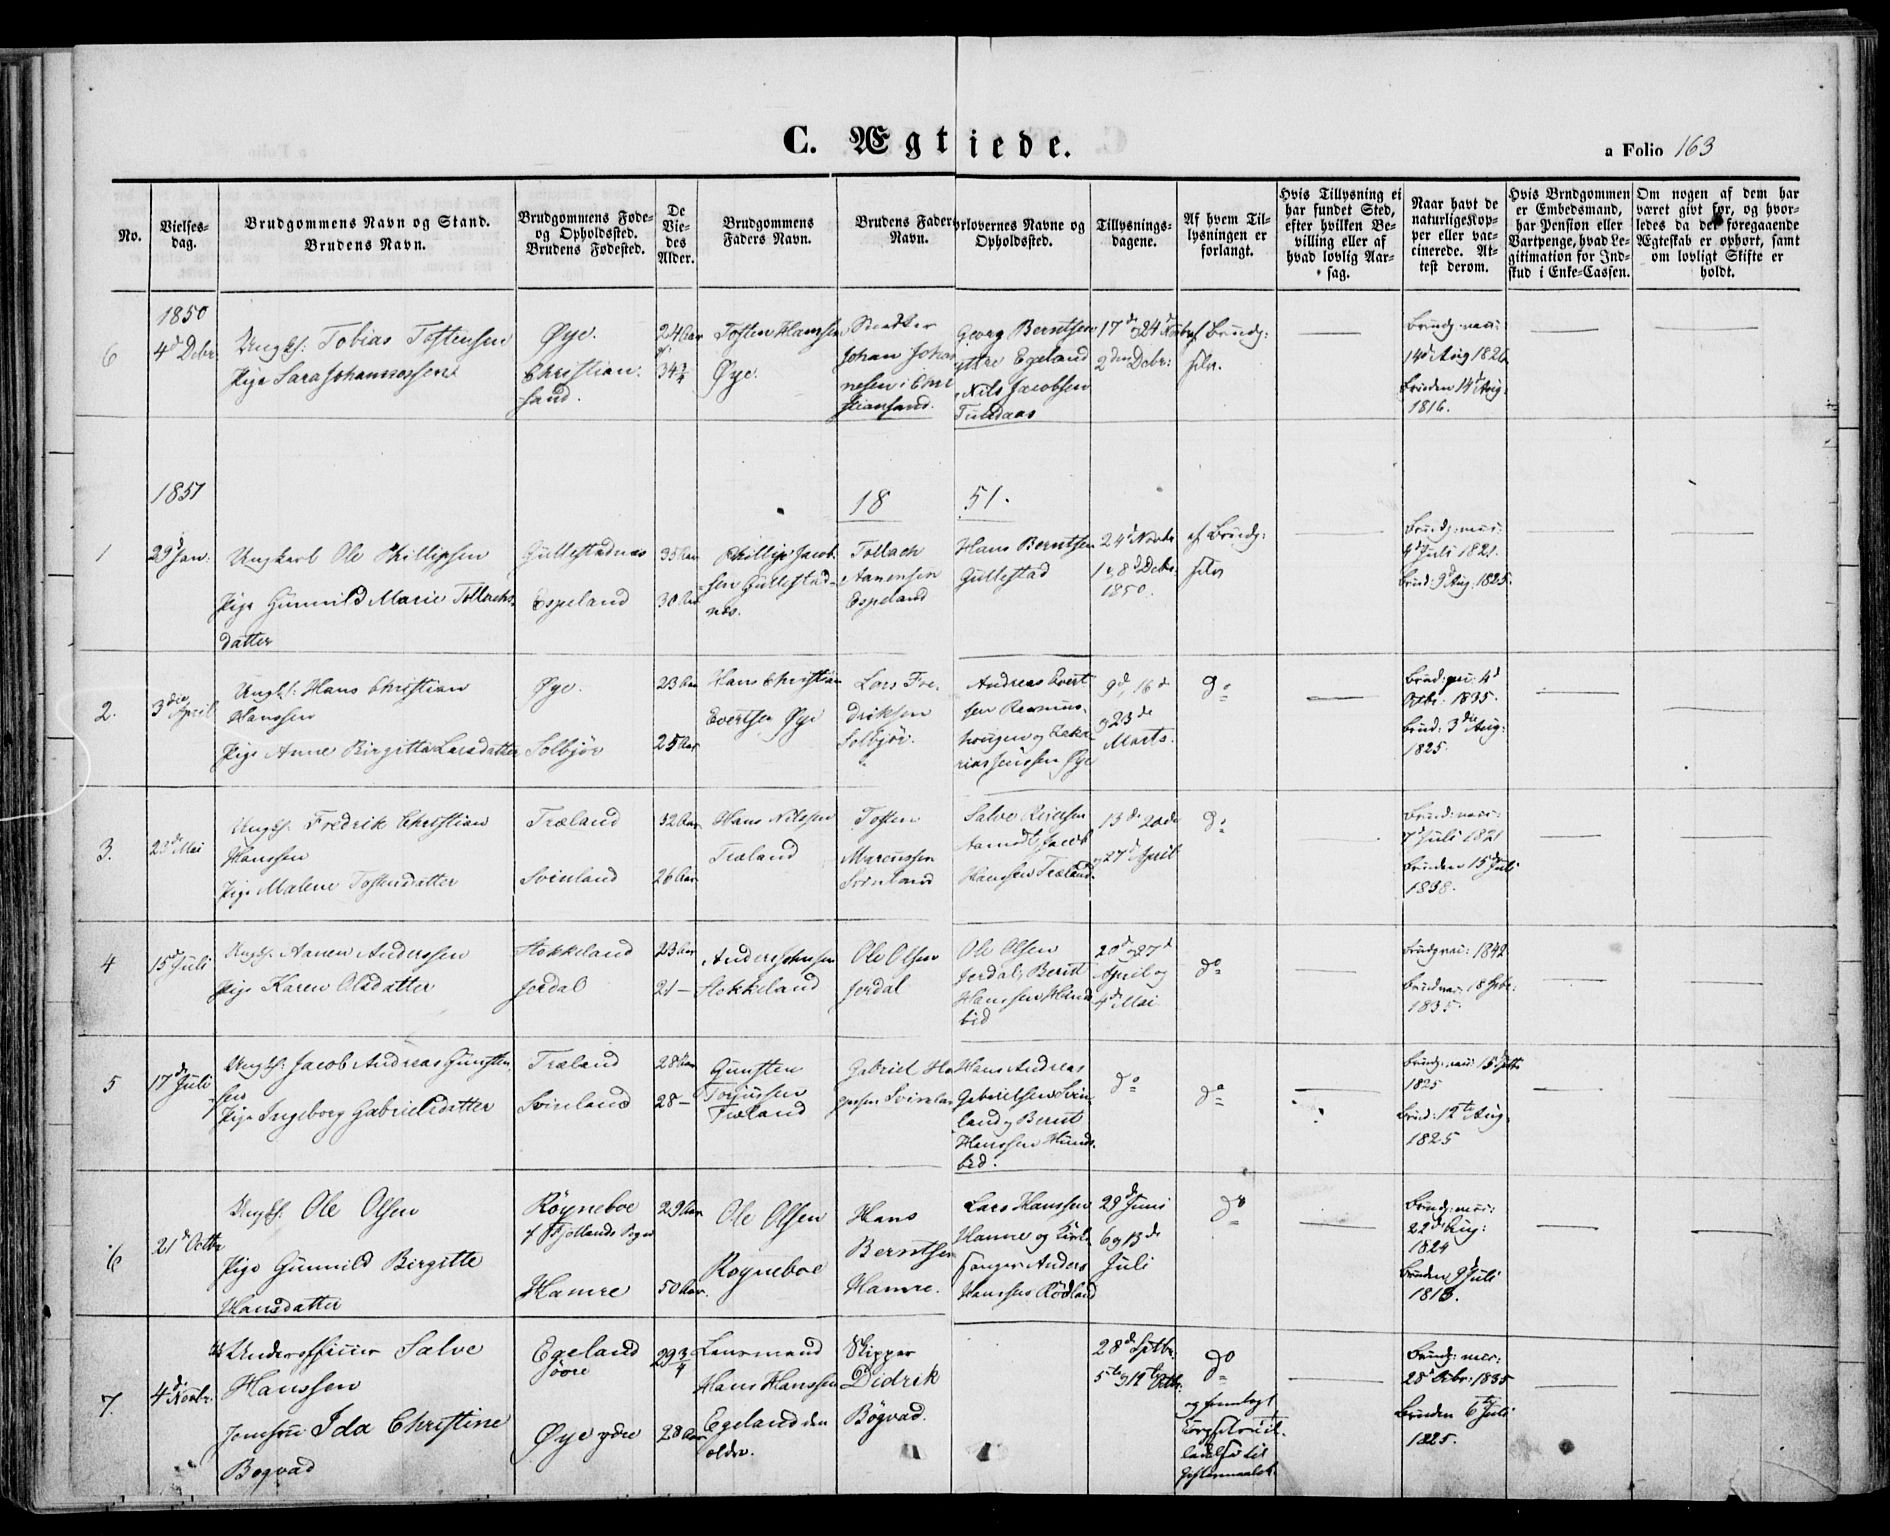 C. Ægtviede.
a Folio 163
No.
Vielses-
dag.
Brudgommens Navn og Stand.
Brudens Navn.
Brudgommens Føde-
og Opholdssted.
Brudens Fødested.
De
Vie-
des
Alder.
Brudgommens
Faders Navn.
Brudens Faders
Navn.
orlovernes Navne og
Opholdssted.
Tillysnings-
dagene.
Af hvem Til-
lysningen er
forlangt.
Hvis Tillysning ei
har fundet Sted,
efter hvilken Be-
villing eller af
hvad lovlig Aar-
sag.
Naar havt de
naturlige Kop-
per eller vac-
cinerede. At-
test derom.
Hvis Brudgommen
er Embedsmand,
har Pension eller
Vartpenge, hvad Le-
gitimation for Ind-
skud i Enke-Cassen.
Om nogen af dem har
været givt før, og hvor-
ledes da det foregaaende
Ægteskab er ophørt, samt
om lovligt Skifte er
holdt.
1850
6
4d Debr
Ungk: Tobias Tostensen
Pige Sara Johannessen
Øye.
Christian-
sand.
24 Aar
34 3/4
Tosten Hansen
Øye.
Johan Johan
nesen i Chri
stiansand.
Georg Berntsen
ytre Egeland
Nils Jacobsen
17de og 24d Novbr
2den Debr:
af Brudg:
selv.
Brudg. vacc:
14d Aug 1826
Bruden 14d Aug:
1816.
1851
18 51.
1
29d Jan:
Ungkarl Ole Phillipsen
Pige Gunnild Marie Tollachs
datter
Gullestadnæs
Espeland
35 Aar
30 Aar
Phillip Jacob-
sen Gullestad-
næs.
Tollach
Aanensen
Espeland
Hans Berntsen
Gullestad
24d Novbr
1 og 8d Debr.
1850.
af Brudg:
selv
Brudg: vacc:
9d Juli 1821
Brud: 9d Aug: 1825.
2.
3die April
Ungk: Hans Christian
Hanssen
Pige Anne Birgitte Larsdatter
Øye.
Solbjør
23 Aar
25 Aar
Hans Christian
Evertsen Øye
Lars Fre-
driksen
Solbjør.
Andreas Evert
sen Rasmus-
hougen og Zaka-
rias Jenssen Øye
9d, 16d
og 23de
Marts.
do
4d
Octbr: 1835.
Brud: 3die Aug:
1825.
3.
23d Mai
Ungk. Fredrik Christian
Hanssen
Pige Malene Tostensdatter
Træland
Svinland
32 Aar
26 Aar
Hans Nilssen
Træland
Tosten
Marcussen
Svinland
Salve
Jacob
Hanssen Træland
13de 20de
og 27d April
do
Brudg: vacc:
7d Juli 1821
Bruden 15d Juli
1838.
4
15d Juli
Ungk. Aanen Anderssen
Pige Karen Olsdatter
Stokkeland
Jerdal
23 Aar
21 —
Anders Johnsen
Stokkeland
Ole Olsen
Jerdal
Ole Olsen
Jerdal, Bernt
Hanssen Hunds
bed
20d og 27d
April og
4d Mai
do
Brudg vac: 1842
Brud vac: 18
1835.
5
17d Juli
Ungk: Jacob Andreas Gunsten
sen
Pige Ingeborg Gabrielsdatter
Træland
Svinland
28 Aar
28 —
Gunsten
Torjussen
Træland
Gabriel
Svinland
Hans Andreas
Gabrielsen Svin-
land og Bernt
Hanssen Hunds-
bed.
do
do
Brudg: vac:
1825
Brud: 12te Aug:
1825
6
21d Octbr
Ungk. Ole Olsen
Pige Gunnild Birgitte
Hansdatter
Røyneboe
i Fjotlands Sogn
Hamre
29 Aar
50 Aar.
Ole Olsen
Royneboe
Hans
Berntsen
Hamre.
Lars Hanssen
Hamre og Kirke
sanger Anders
Hanssen Rødland
29d Juni
6 og 13de
Juli
do
Brudg: vacc:
22d Aug:
1824
Bruden 9d Juli
1818.
7.
4d Novbr.
Underofficier Salve
Hanssen
Jomfru Ida Christine
Bogvad
Egeland
øvre
Øye ydre
29 3/4
28 Aar
Lensmand
Hans Hanssen
Egeland den
ældre.
Skipper
Didrik
Bögvad.
28d Septbr.
5te og 12te Octbr.
do
og fremlagt
til
Brudg: vacc:
28d Octbr: 1835
Bruden 6te Juli
1825.